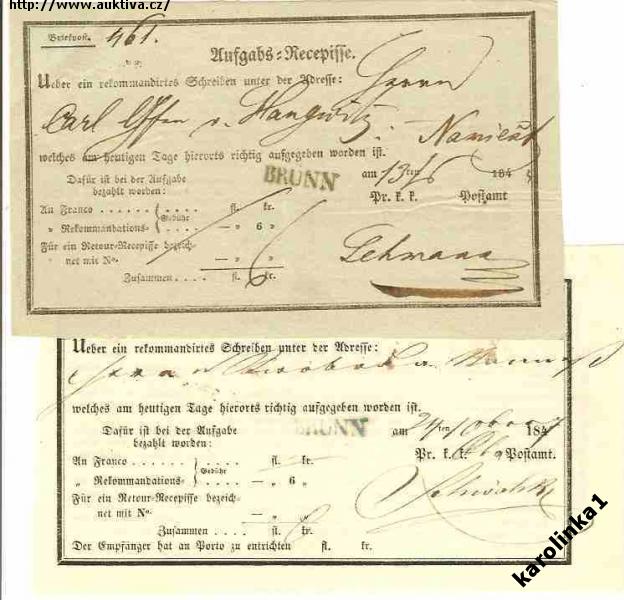 http://www.auktiva.cz/
Briefpost. 461.
Aufgabs-Recepisse.
Ueber ein rekommandirtes Schreiben unter der Adresse: Herrn
Carl v. Haugwitz. Namiest
welches am heutigen Tage hierorts richtig aufgegeben worden ist.
BRÜNN
Dafür ist bei der Aufgabe am 13ten 184
bezahlt worden: Pr. k. k. Postamt
An Franco . . . . . . Gebühr . . . . fl. kr.
„ Rekommandations- — „ 6 „
Für ein Retour-Recepisse bezeich-
net mit No. — „ „ Lehmann
Zusammen . . . . fl. 6 kr.
Ueber ein rekommandirtes Schreiben unter der Adresse:
welches am heutigen Tage hierorts richtig aufgegeben worden ist.
Dafür ist bei der Aufgabe BRÜNN am 24ten 1847
bezahlt worden: Pr. k. k. Postamt.
An Franco . . . . . . Gebühr . . . . fl. kr.
„ Rekommandations- — „ 6 „
Für ein Retour-Recepisse bezeich-
net mit No. — „ „
Zusammen . . . . fl. kr.
Der Empfänger hat an Porto zu entrichten fl. kr.
karolinka1